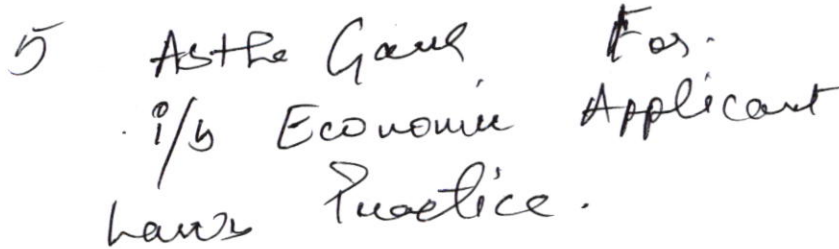 5 Astha Gaur For.
i/b Economic Applicant
Laws Practice.